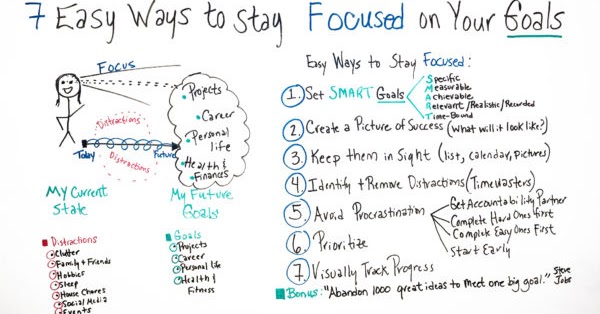 7 Easy Ways to Stay Focused on Your Goals
Focus
Projects
Career
Personal life
Health & Finances
Distractions
Distractions
Today
Future
My Current State
My Future Goals
Distractions
Clutter
Family + Friends
Hobbies
Sleep
House Chores
Social Media
Events
Goals
Projects
Career
Personal life
Health & Fitness
Easy Ways to Stay Focused:
1. Set SMART Goals
Specific
Measurable
Achievable
Relevant/Realistic/Recorded
Time-Bound
2. Create a Picture of Success (What will it look like?)
3. Keep them in Sight (list, calendar, pictures)
4. Identify + Remove Distractions (Timewasters)
5. Avoid Procrastination
Get Accountability Partner
Complete Hard Ones First
Complete Easy Ones First
Start Early
6. Prioritize
7. Visually Track Progress
Bonus: "Abandon 1000 great ideas to meet one big goal." Steve Jobs